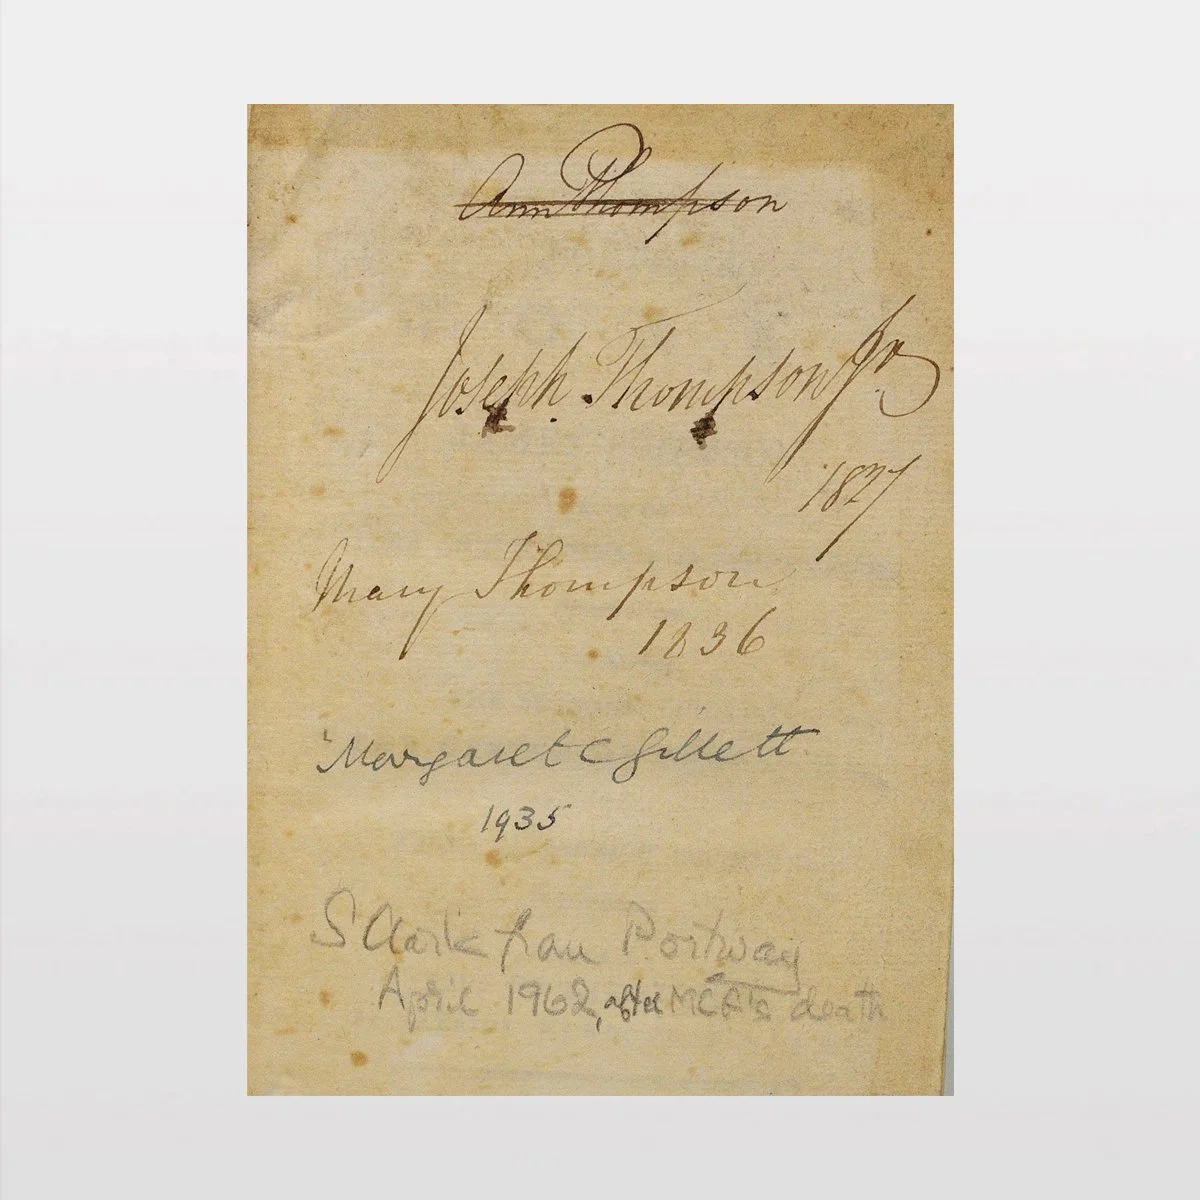 Ann Thompson
Joseph Thompson Jr
1827
Mary Thompson
1836
Margaret C Gillett
1935
S Clark from Portway
April 1962, after MCG's death